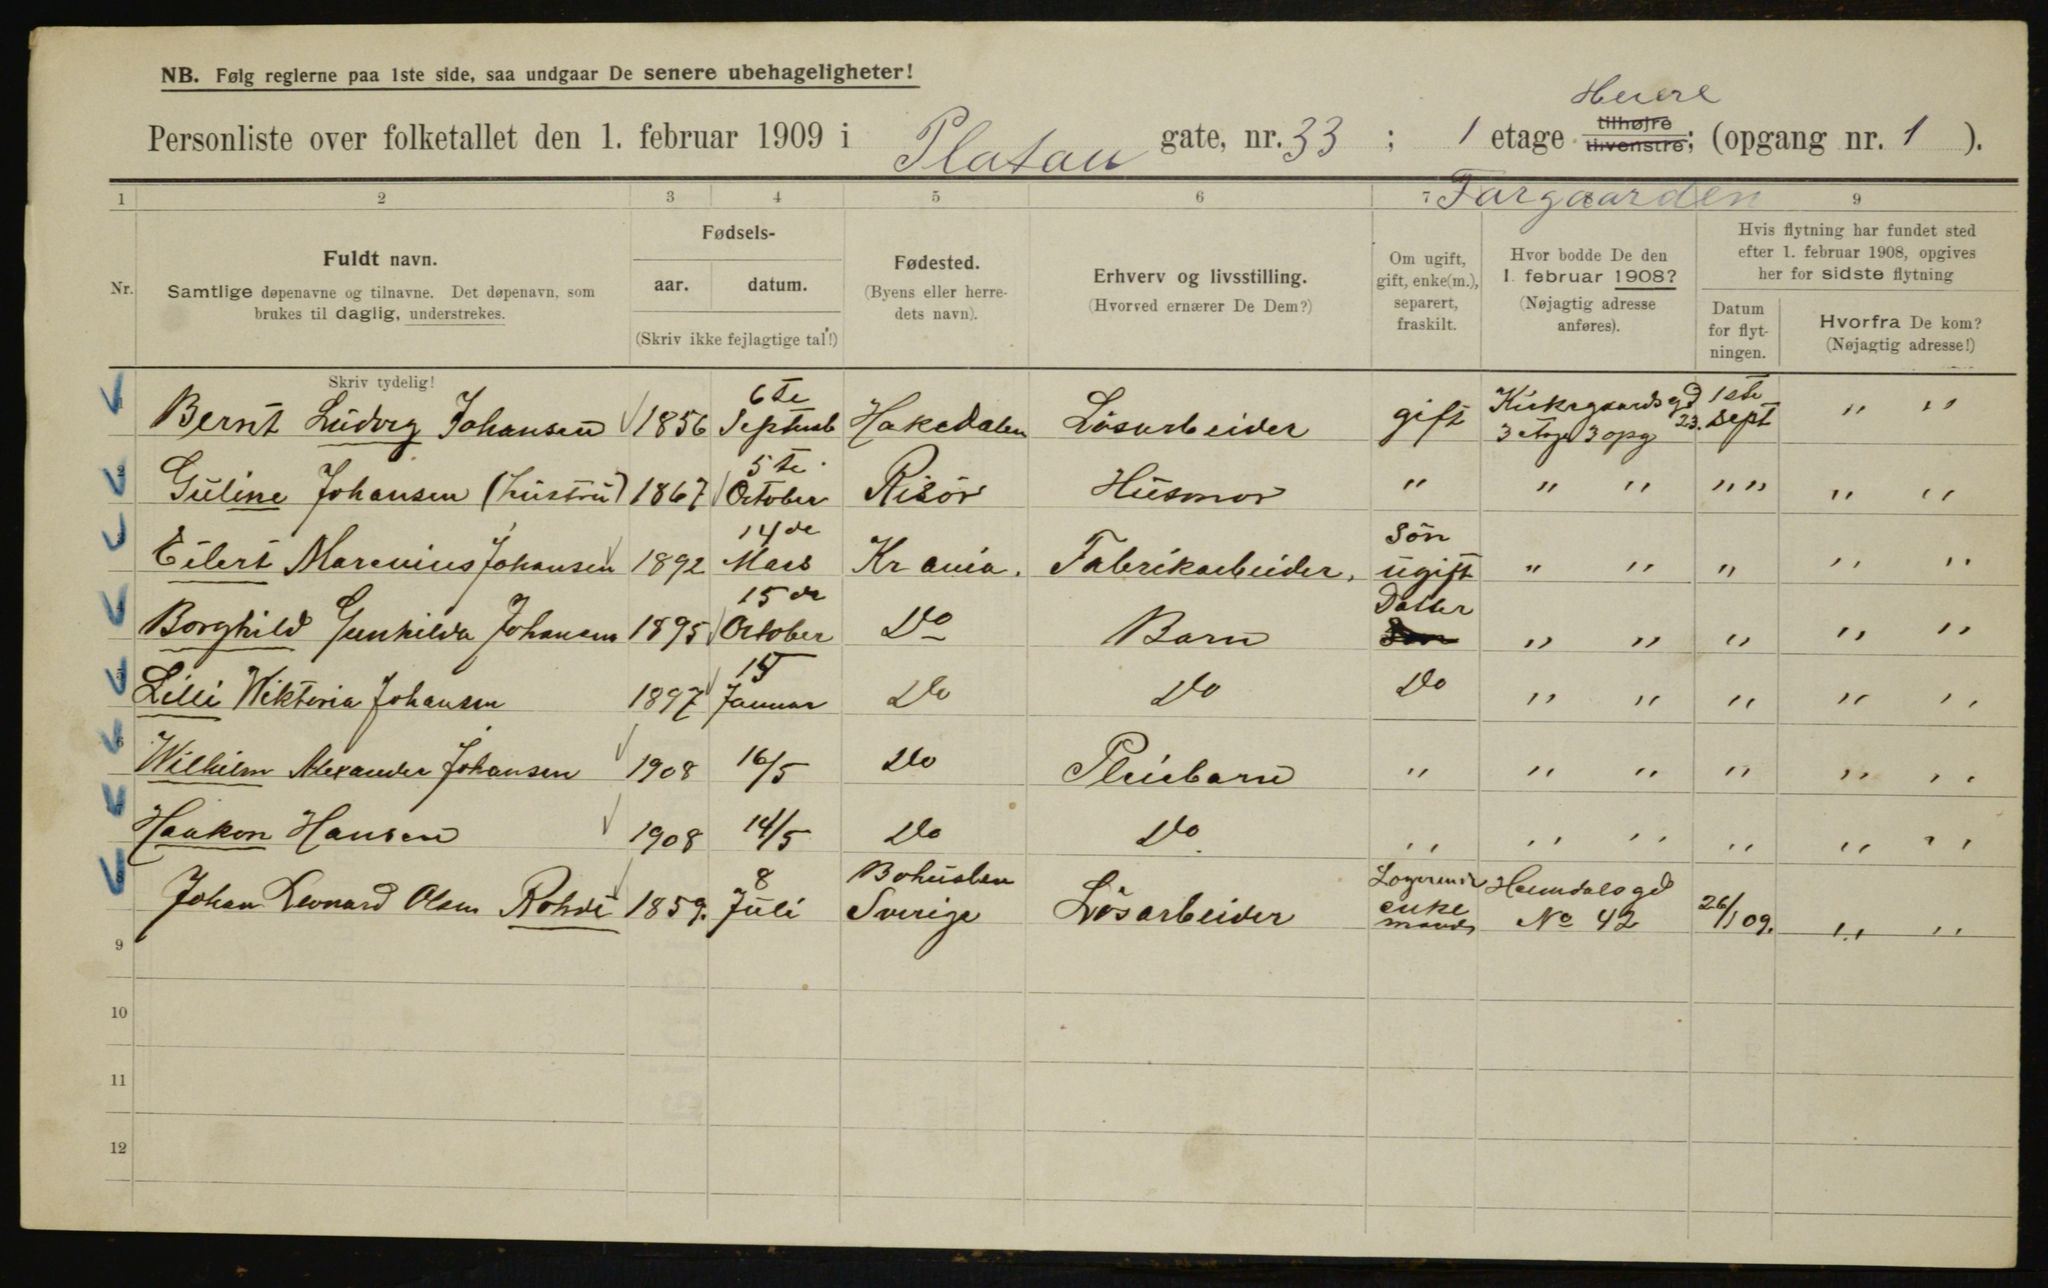 NB. Følg reglerne paa 1ste side, saa undgaar De senere ubehageligheter!
Høiere
Personliste over folketallet den 1. februar 1909 i Platou gate, nr. 33 ; 1 etage tilhøjre tilvenstre; (opgang nr. 1 ).
Forgaarden
1 2 3 4 5 6 7 8 9
Nr.
Fuldt navn.
Samtlige døpenavne og tilnavne. Det døpenavn, som
brukes til daglig, understrekes.
Skriv tydelig!
Fødsels-
aar. datum.
(Skriv ikke fejlagtige tal!)
Fødested.
(Byens eller herre-
dets navn).
Erhverv og livsstilling.
(Hvorved ernærer De Dem?)
Om ugift,
gift, enke(m.),
separert,
fraskilt.
Hvor bodde De den
1. februar 1908?
(Nøjagtig adresse
anføres).
Hvis flytning har fundet sted
efter 1. februar 1908, opgives
her for sidste flytning
Datum
for flyt-
ningen.
Hvorfra De kom?
(Nøjagtig adresse!)
1 Bernt Ludvig Johansen 1856 6te Septemb Hakedalen Løsarbeider gift Kirkegaardsgd 23. 3 etage 3 opg 1ste Sept " "
2 Guline Johansen (hustru) 1867 5te October Risör Husmor " " " " " " "
3 Eilert Marenius Johansen 1892 14de Mars Kr ania. Fabrikarbeider. Sön ugift " " " " "
4 Borghild Gunhilda Johansen 1895 15de October Do Barn Datter " " " " "
5 Lilli Wiktoria Johansen 1897 15 Januar Do Do Do " " " " "
6 Wilhelm Alexander Johansen 1908 16/5 Do Pleiebarn " " " " " "
7 Haakon Hansen 1908 14/5 Do Do " " " " " "
8 Johan Leonard Olsen Rohde 1859. 8 Juli Bohuslen Sverige Løsarbeider Logerende enke mand Heimdalsgd No 42 26/1 09. " "
9
10
11
12